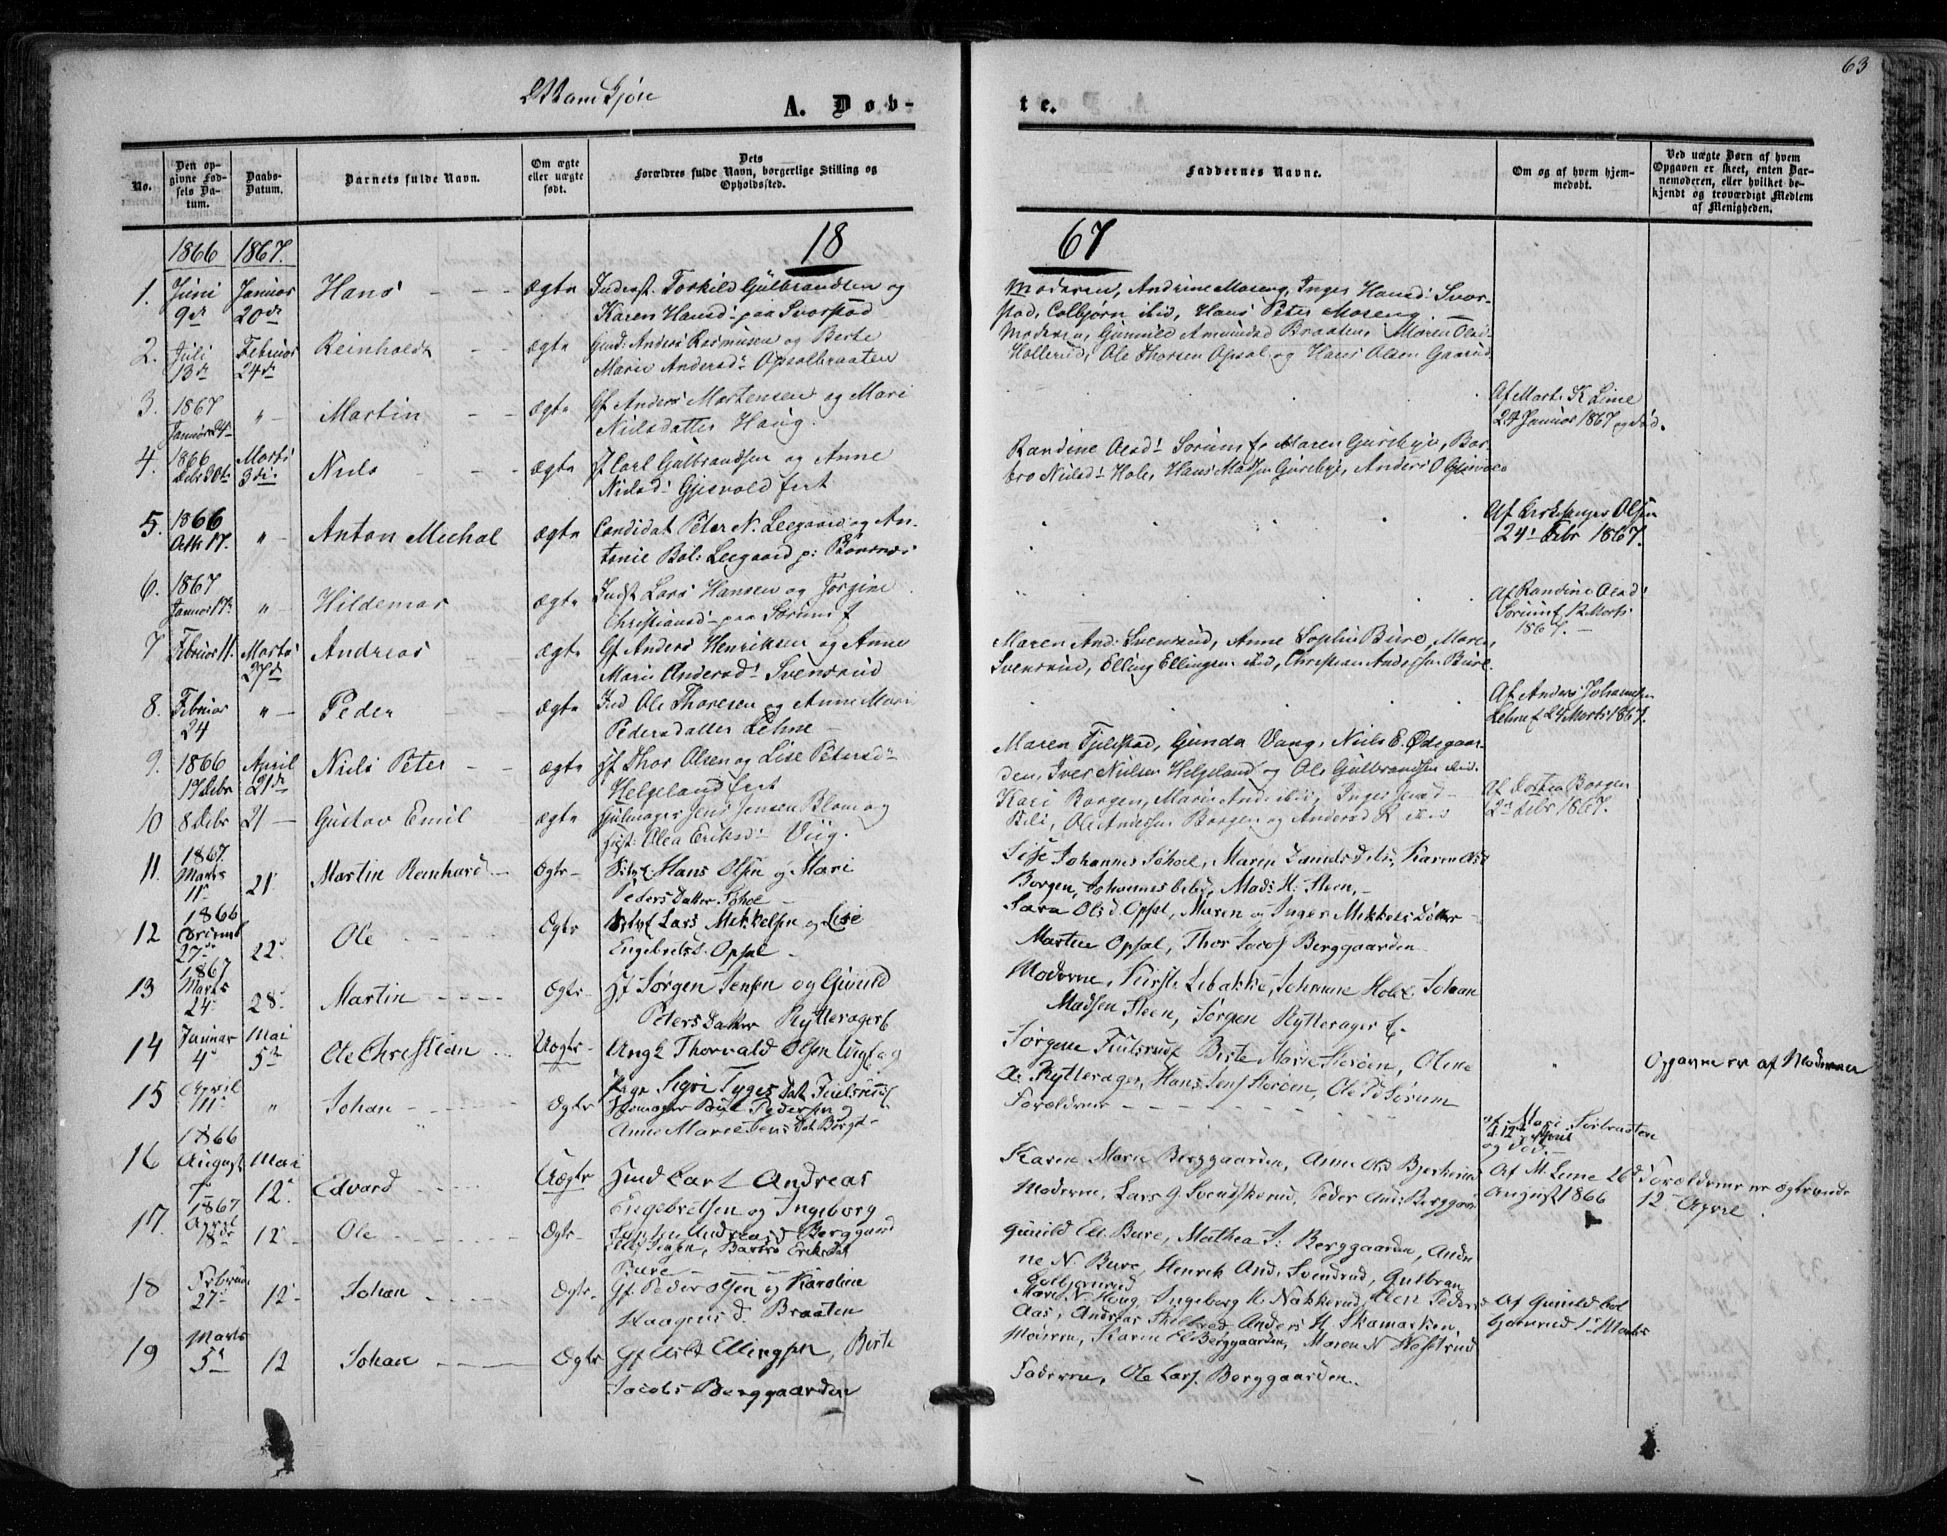 63
A. Døb-
te.
No.
Den op-
givne Fød-
sels Da-
tum.
Daabs-
Datum.
Barnets fulde Navn.
Om ægte
eller uægte
født.
Dets
Forældres fulde Navn, borgerlige Stilling og
Opholdssted.
Faddernes Navne.
Om og af hvem hjem-
medøbt.
Ved uægte Børn af hvem
Opgaven er skeet, enten Bar-
nemoderen, eller hvilket be-
kjendt og troværdigt Medlem
af Menigheden.
1866 1867.
18
67
1. Juni Januar Hans ægte Inderst. Torkild Gulbrandsen og
9de 20de Karen Hansd: paa Svarstad
Moderen, Andrine Moseng, Inger Hansd: Svar-
stad, Colbjørn ibid, Hans Peter Moseng.
2. Juli Februar Reinholdt ægte Anders Rasmusen og Berte
13de 24de Marie Andersd: Opsalbraaten
Moderen, Gunnild Amundsd Braaten, Maren Olsd
Hollerud, Ole Thorsen Opsal og Hans Olsen Gaarud
3. 1867 " Martin ægte Gf Anders Mortensen og Mari
Januar 24 Nielsdatter Haug.
Af Mart. K Lime
24 Januar 1867 og død.
4. 1866 Marts Niels ægte Sf Carl Gulbrandsen og Anne
Debr 30te 3die Nielsd: Gjesvold fert
Randine Olsd: Sørum f. Maren Gurebye, Bar-
bro Nielsd: Hole, Hans Madsen Gurebye, Anders O Gjesvold
5. 1866 " Anton Michal ægte Candidat Peter N. Leegaard og An-
Octb 17. tonie Bol: Leegaard p: Bønsnes
Af Kirkesanger Olsen
24' Febr 1867.
6. 1867 " Hildemar ægte Indst Lars Hansen og Jørgine
Januar 17de Christiansd: paa Sørum f
Af Randine Olsd:
Sørum f 12 Marts
1867.
7 Februar 11. Marts Andreas ægte Gf Anders Henriksen og Anne
27de Marie Andersd: Svensrud
Maren And: Svensrud, Anne Sophie Bure, Maren
Svensrud, Elling Ellingsen ibid, Christian Andersen Bure
8. Februar " Peder ægte Ind Ole Thoresen og Anne Mari
24 Pedersdatter Lehne
Af Anders Johannesen
Lehne f 24 Marts 1867.
9. 1866 April Niels Peter ægte Sf Thor Olsen og Lise Petersd:
19 Debr 21de Helgeland fert
Maren Fjelstad, Gunda Vang, Niels E. Ødegaar-
den, Iver Nielsen Helgeland og Ole Gulbrandsen ibid.
10 8 Debr 21 Gustav Emil ægte Hjulmager Jens Jensen Blom og
Olea Eriksd: Viig.
Kari Borgen, Marie And ibid, Inger
Bili, Ole Andersen Borgen og
Af Dorthea Borgen
2den Febr 1867.
11. 1867. Marts 11te 21' Martin Reinhard Ægte Hans Olsen og Mari
Peders Datter Søhol
Lise Johannes Søhol, Maren Lands Datter, Karen Olsd
Borgen, Johannes ibid, Mads H. Steen,
12 1866 27de 22' Ole Ægte Lars Mikkelsen og Lise
Engebretsd. Opsal
Sara Olsd. Opsal, Maren og Inger Mikkels Datter
Martin Opsal, Thor Jacob Berggaarden
13 1867 Marts 24' 28' Martin Ægte Hf Jørgen Jensen og Gunild
Peters Datter Rytterager f
Moderne, Kirsti Libakke, Johanne Hole, Johan
Madsen Steen, Jørgen Rytterager f.
14 Januar 4' Mai 5te Ole Christian Uægte Ungk Thorvald Olsen
Pige Sigri Tyges Dat Fiulsrud
Jørgine Fiulsrud Birte Marie Storøen, Oline
Rytterager, Hans Jens Storøen, Ole P Sørum
Opgavne er af Moderen
15 April 11' " Johan Ægte Pedersen og
Anne Marie Jens Dat Borgd
Forældrene
af Mari Sørbraaten
d 12te April
og død.
16 1866 August Mai 12' Edvard Uægte Ind Carl Andreas
Engebretsen og Ingeborg
Andreasd Berggaard
Karen Marie Berggaarden, Anne Olsd Bjerkerud
Moderne, Lars G Svendskerud, Peder And: Berggaard
Af M. Leine 26de
August 1866
Forældrene er ægteviede
12 April.
17. 1867 April 18de 12' Ole Ægte Barbro Eriksdat
Bure
Gunild El Bure, Mathea J: Berggaarden, Andri
ne N. Bure, Henrik And. Svendrud, Gulbran
Colbjørnrud
18 Februar 27' 12' Johan Ægte Gf. Peder Olsen og Karoline
Haagens d. Braaten
Mari N. Haug, Ingeborg K. Nakkerud, Peder
Aas, Andreas Anders H. Skamarken,
Af Gunild Col
bjørnrud 1' Marts
19 Marts 5' 12 Johan Ægte Gf Ellingsen, Birte
Jacobs Berggaarden
Moderen, Karen El Berggaarden, Maren N Høfsrud
Faderen, Ole Lars. Berggaarden.